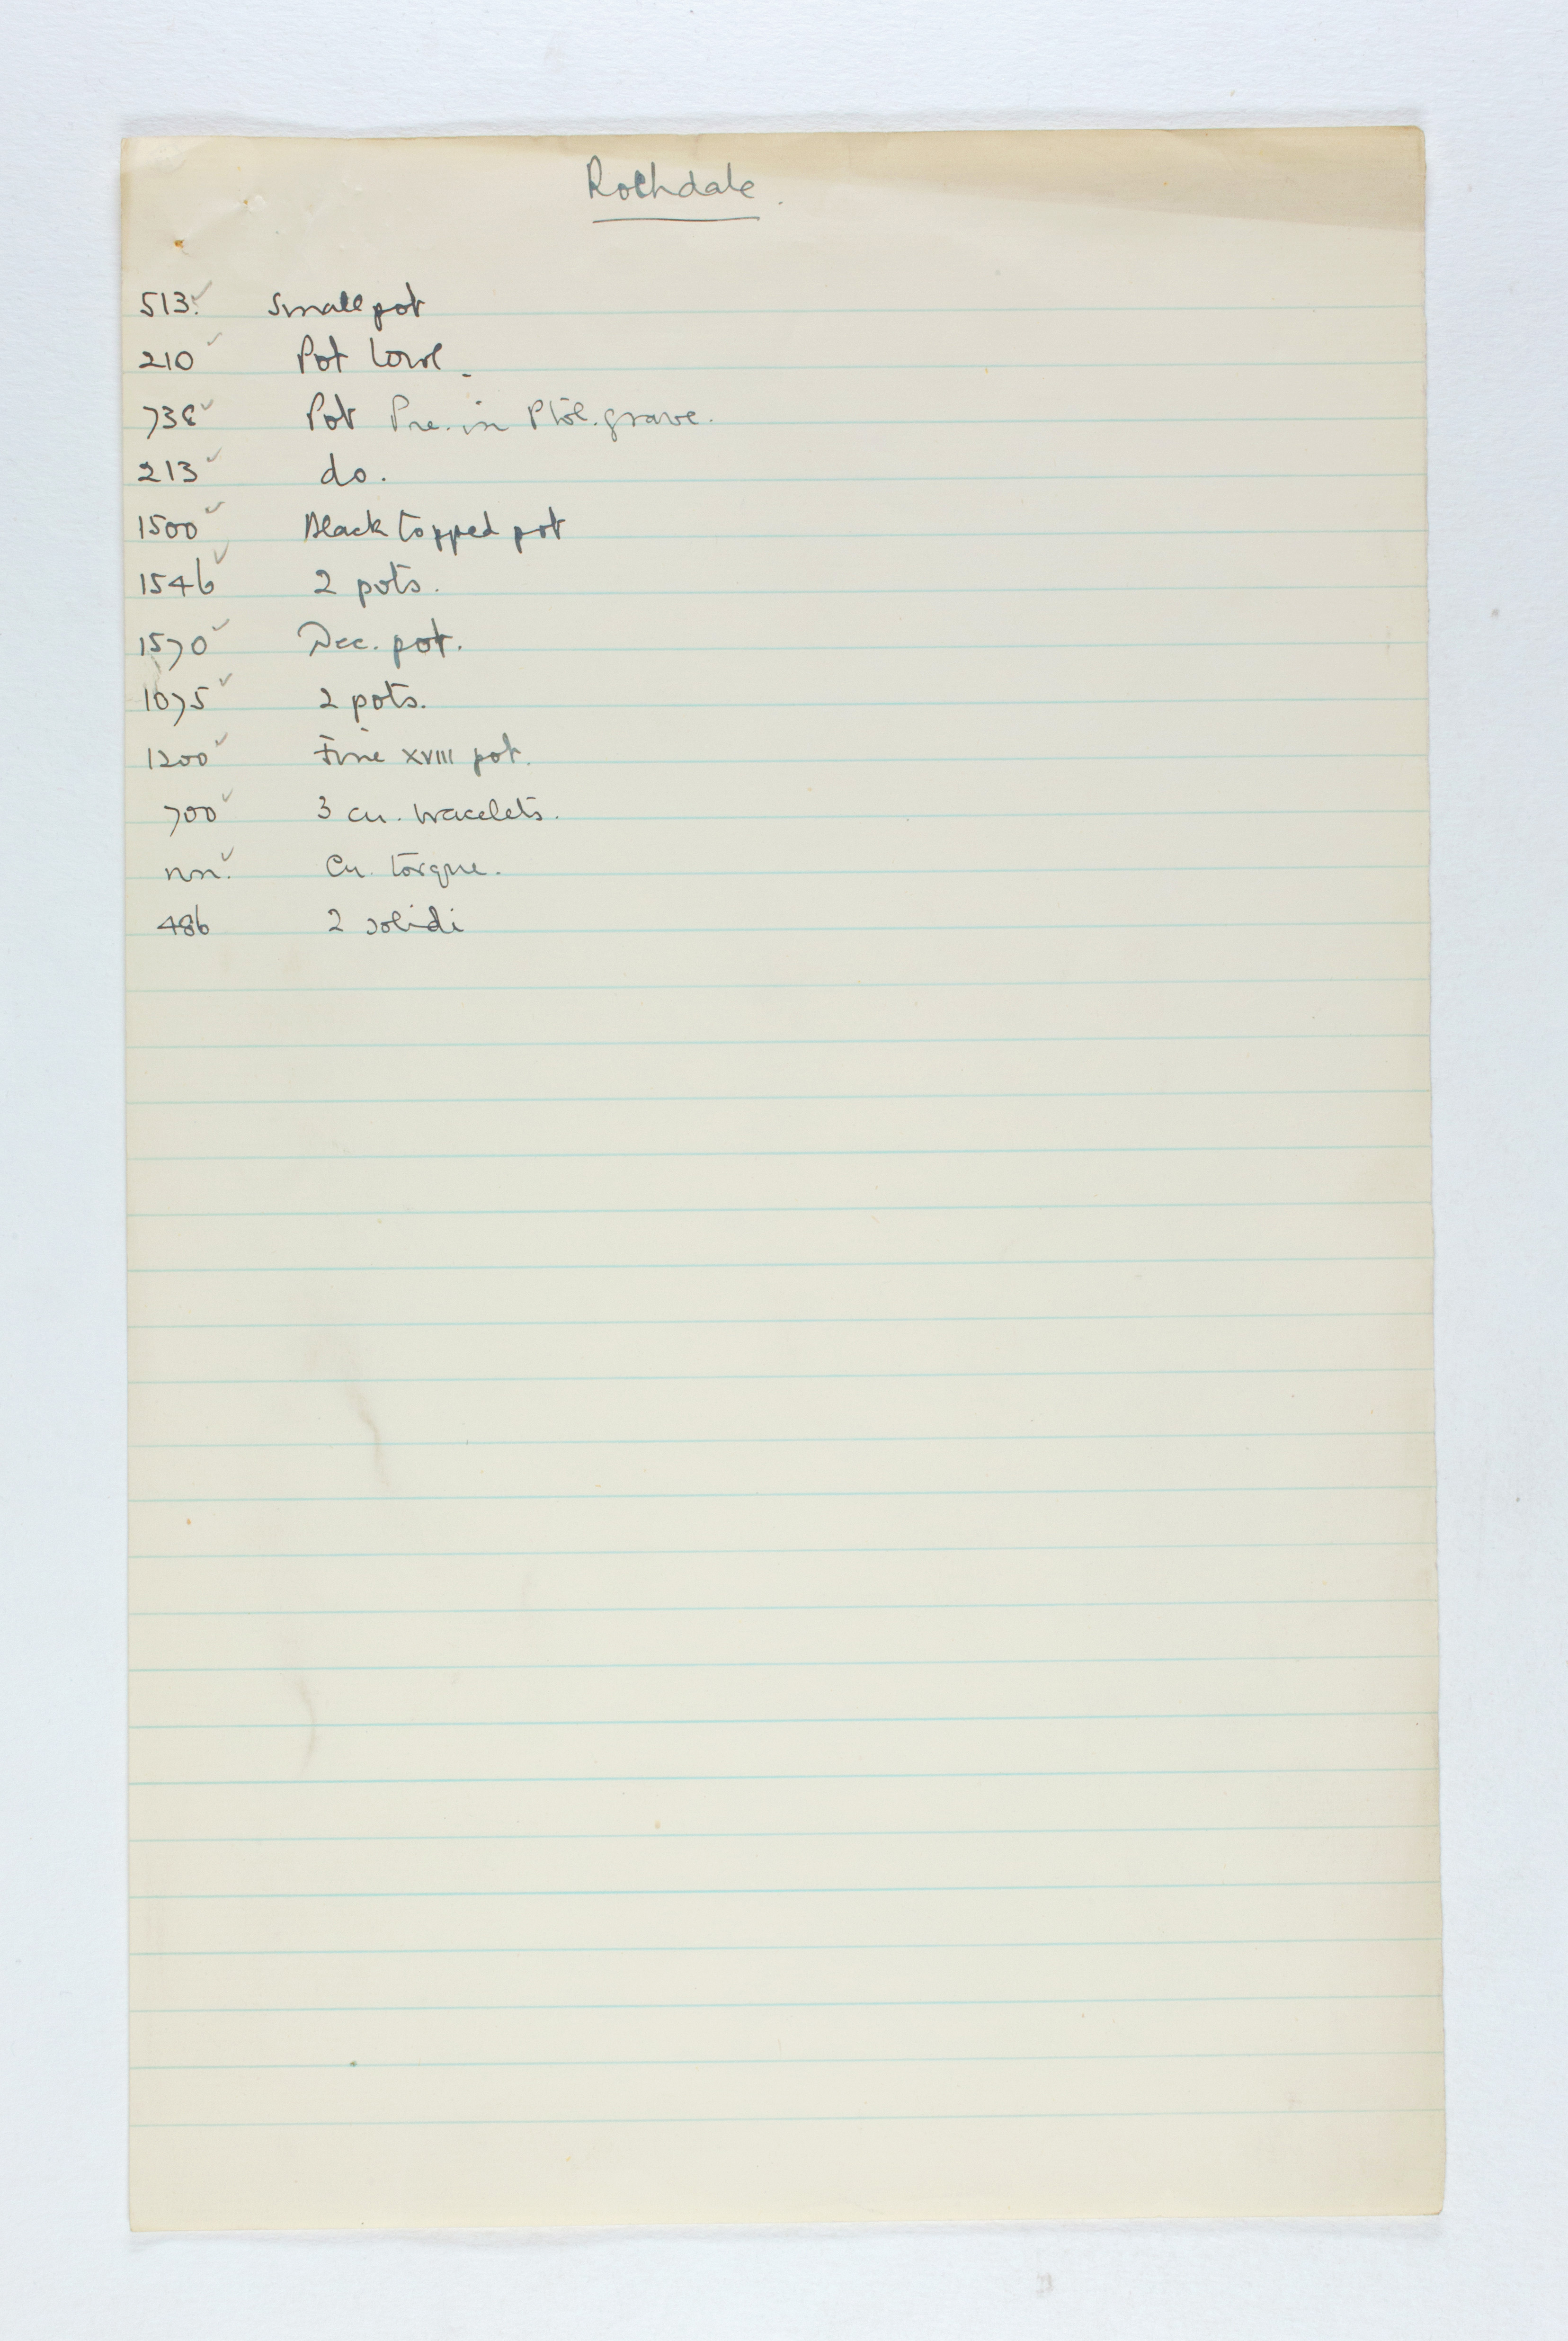 Rochdale.
513. ✓ Small pot
210 ✓ Pot bowl.
738 ✓ Pot Pre. in Ptol. grave.
213 ✓ do.
1500 ✓ Black topped pot
1546 ✓ 2 pots.
1570 ✓ Dec. pot.
1075 ✓ 2 pots.
1200 ✓ Fine XVIII pot.
700 ✓ 3 cu. bracelets.
nn. ✓ Cu. torque.
486 2 solidi